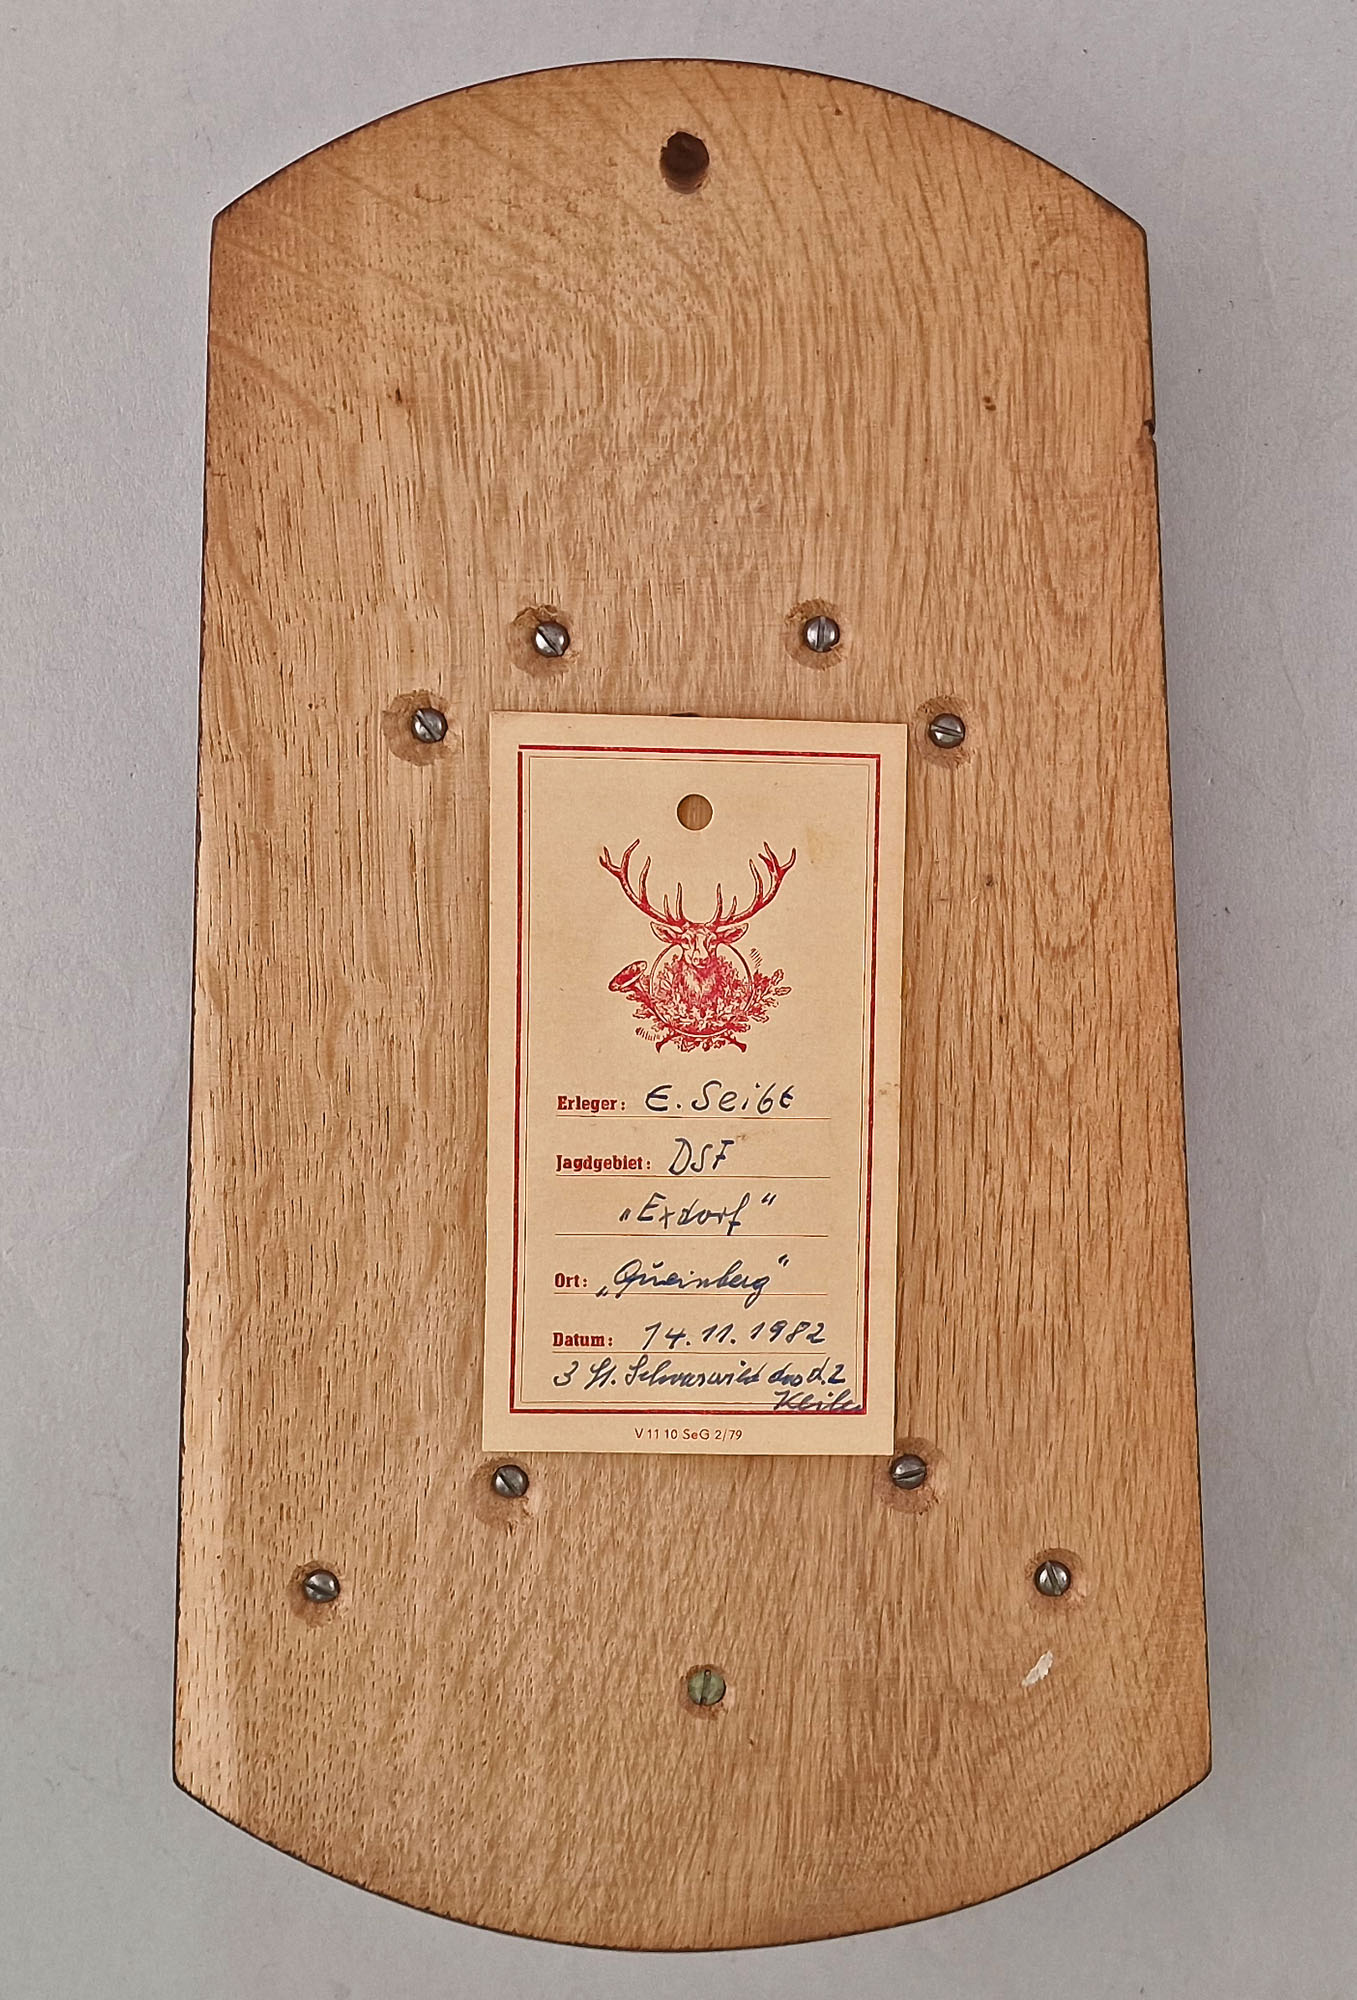 Erleger: E. Seibt
Jagdgebiet: DSF
„Exdorf"
Ort: „Queinberg"
Datum: 14.11.1982
3 St. Schwarzwild das d. 2
Keiler
V 11 10 SeG 2/79